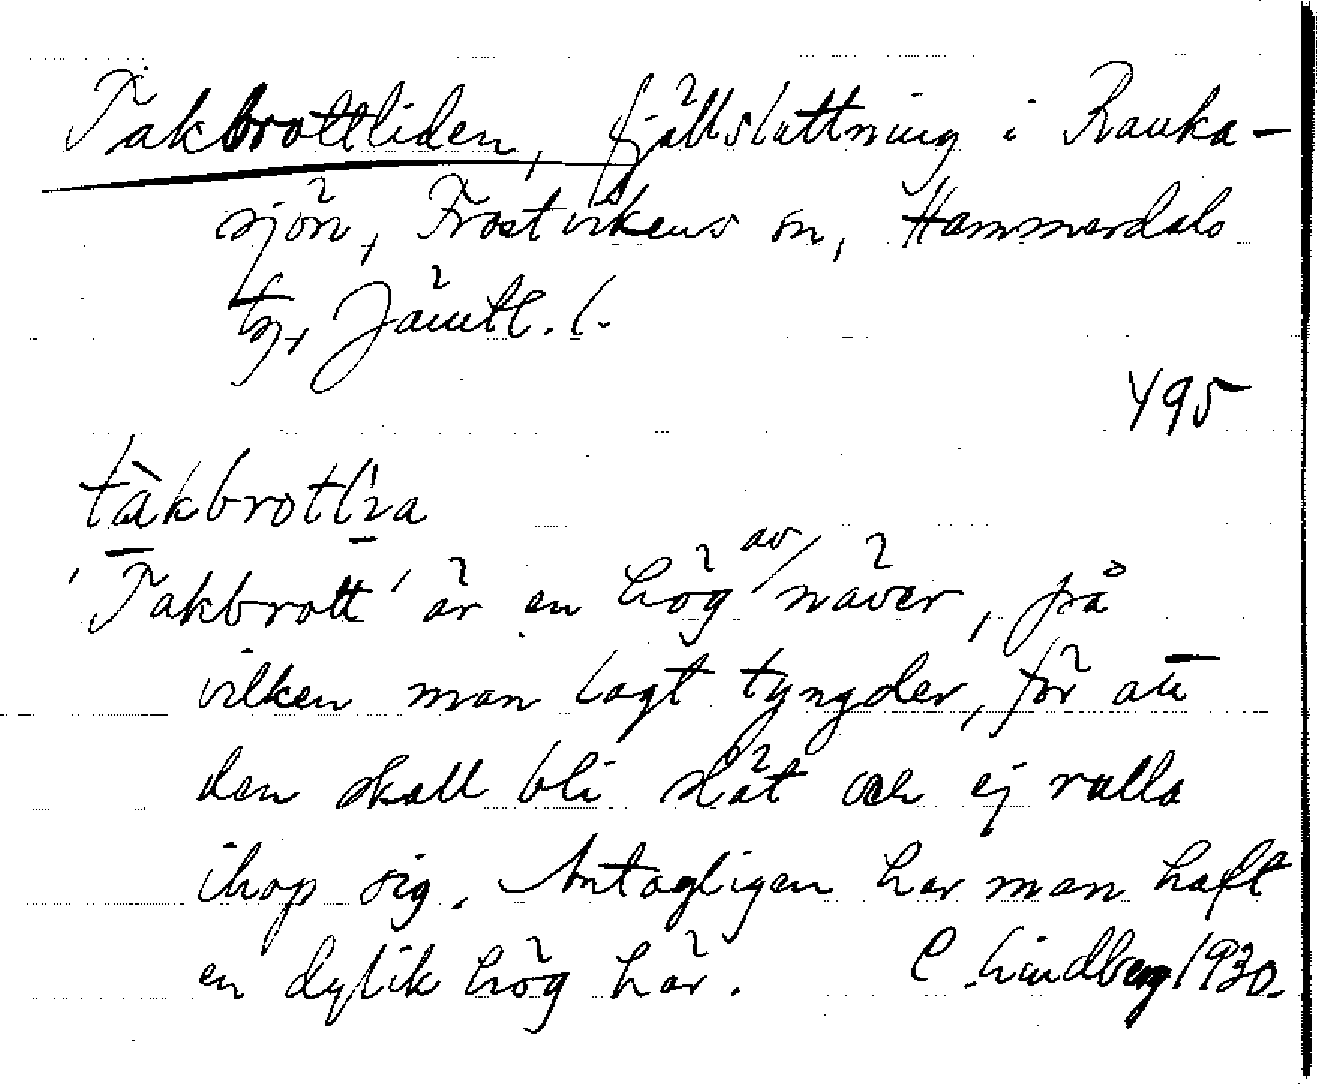 Takbrottliden, fjällsluttning i Rauka-
sjön, Frostvikens sn, Hammerdals
tg, Jämtl. l.
495
tàkbrotlia
'Takbrott' är en hög av näver, på
vilken man lagt tyngder, för att
den skall bli slät och ej rulla
ihop sig. Antagligen har man haft
en dylik hög här. C. Lindberg 1930.